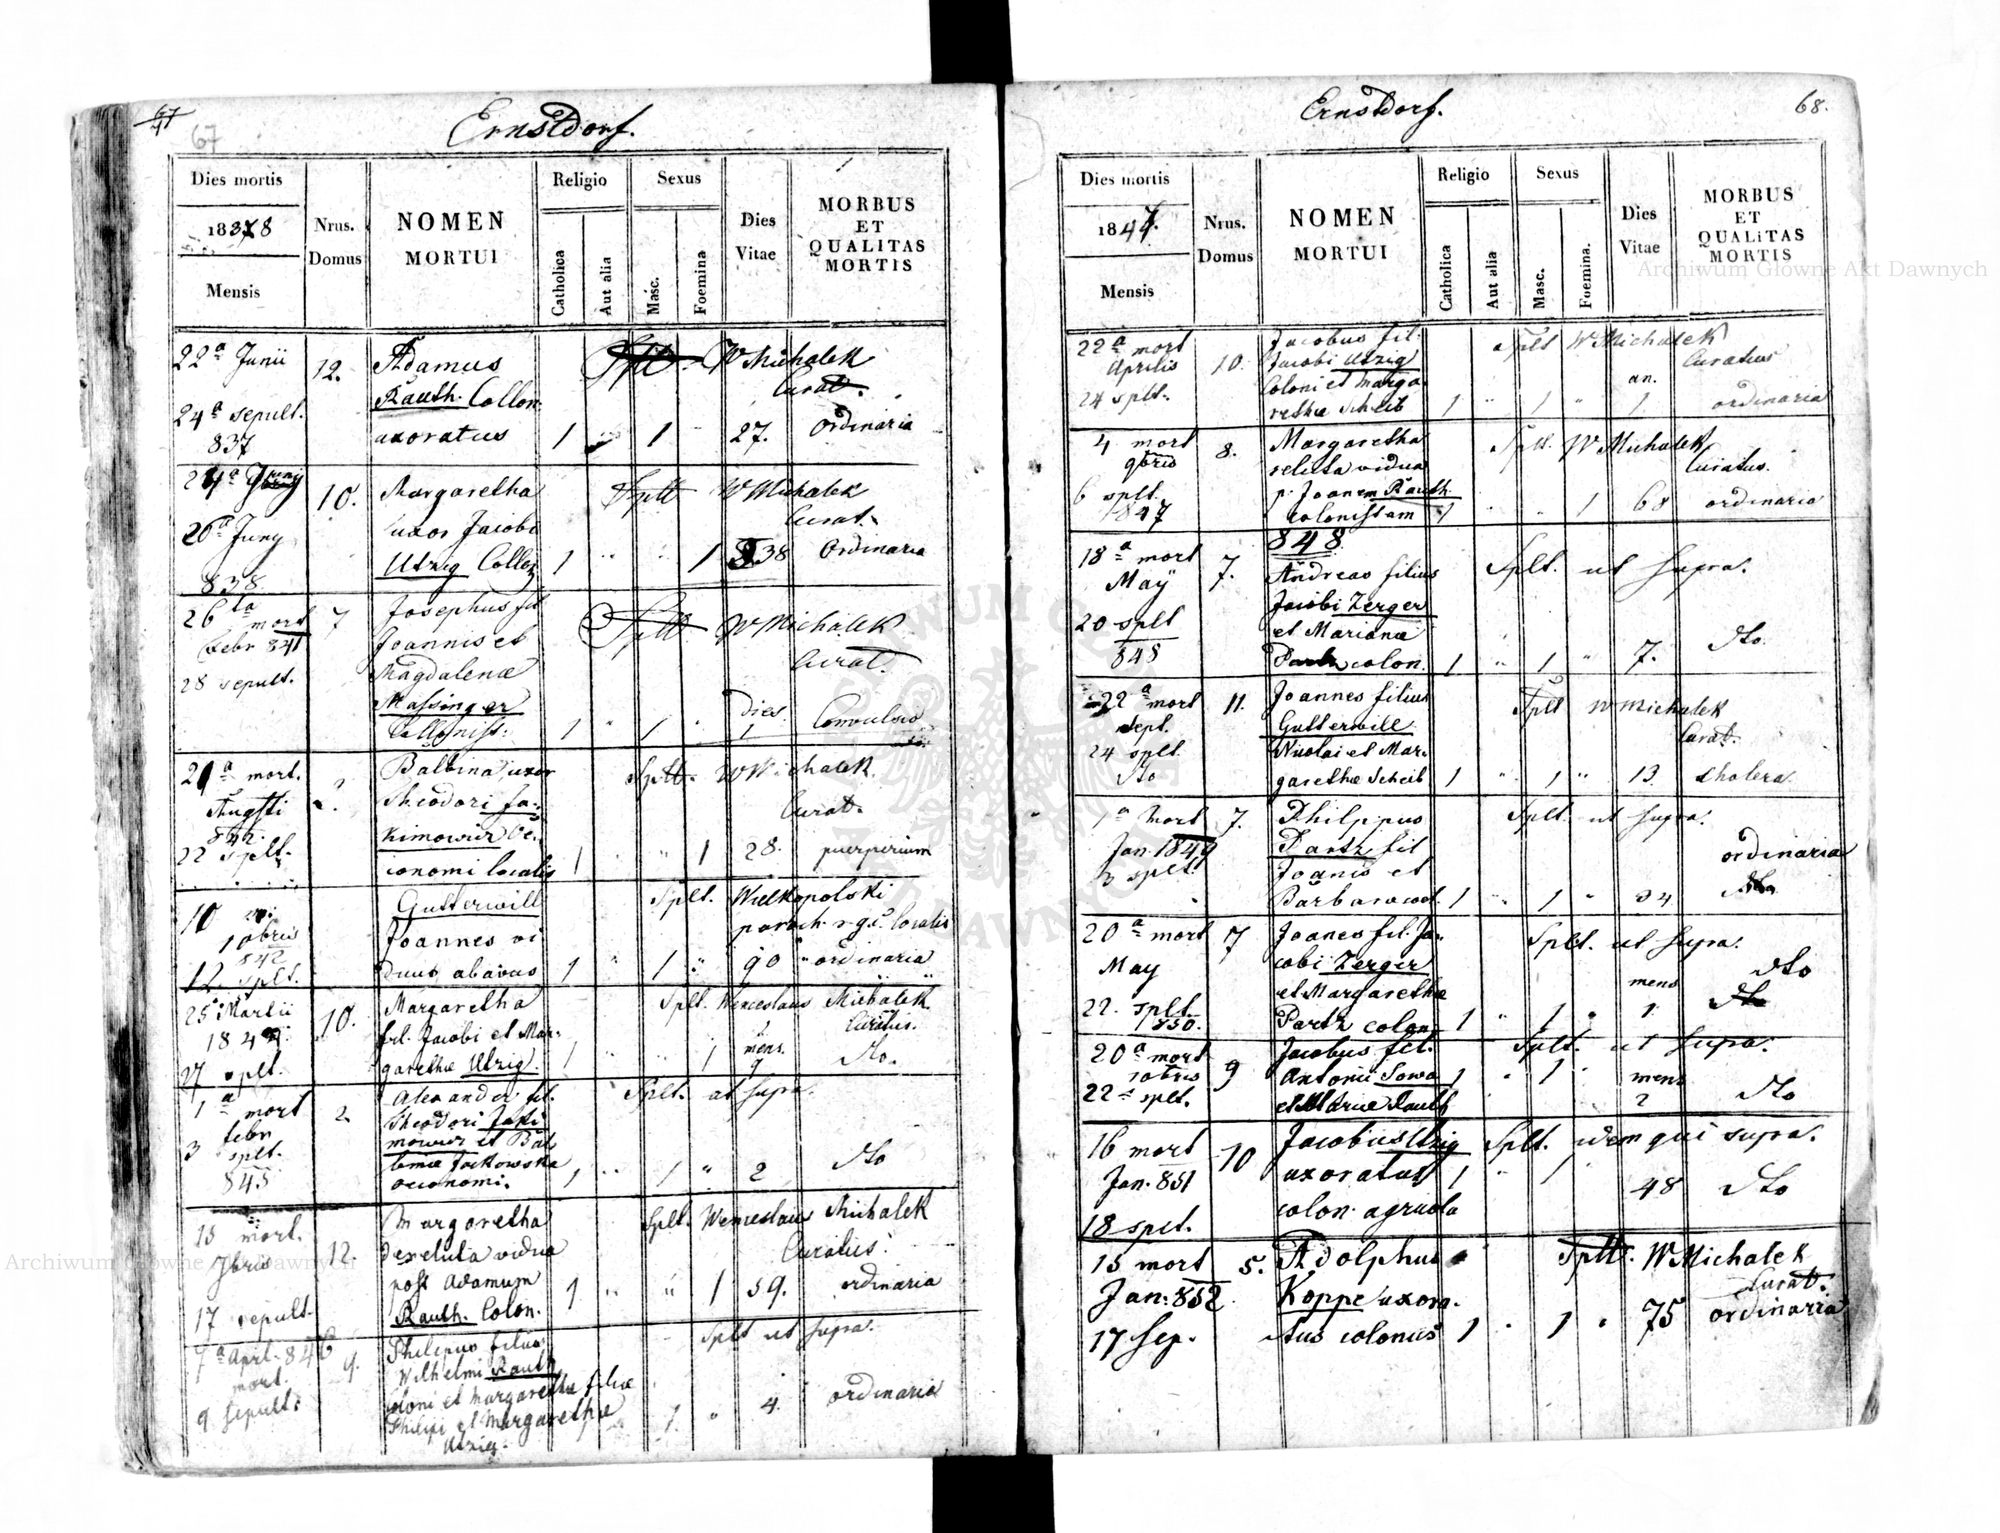 67
67
Ernstdorf.
Dies mortis
18378
Mensis
Nrus.
Domus
NOMEN
MORTUI
Religio
Catholica
Aut alia
Sexus
Masc.
Foemina
Dies
Vitae
MORBUS
ET
QUALITAS
MORTIS
22a Junii
24a sepult.
837
12.
Adamus
Rauth. Collon.
uxoratus
Splt W Michalek
Curat.
1 " 1 " 27. Ordinaria
24a Juny
26a Juny
838
10.
Margaretha
uxor Jacobi
Utzig Collon
Splt W Michalek
Curat.
1 " " 1 38 Ordinaria
26ta mort
Febr 841
28 sepult.
7
Josephus fil
Joannis et
Magdalenae
Massinger
Collonist:
Splt W Michalek
Curat.
Dies
1 " 1 " 1 Convulsio
21a mort.
Augsti
842.
22 splt.
Balbina uxor
Theodori Ja-
kimowicz Oe-
conomi localis
Splt. W Michalek
Curat.
1 " " 1 28. puerperium
10
10bris
842
12. splt.
Gutterwill
Joannes vi
duus abavus
Splt. Wielkopolski
paroch r.g.c. localis
1 " 1 " 90 " ordinaria
25 Martii
184
27 splt.
10.
Margaretha
fil. Jacobi et Mar-
garethae Utzig.
Splt. Wenceslaus Michalek
Curatus.
mens.
1 " " 1 9 dto.
1a mort
febr
3 splt.
845
2.
Alexander fil.
Theodori Jaki
mowicz et Bal
binae Jackowska
oeconomi.
Splt. ut supra.
1 " 1 " 2 dto
15 mort.
17 sepult.
12.
Margaretha
derelicta vidua
post Adamum
Rauth. Colon.
Splt. Wenceslaus Michalek
Curatus.
1 " " 1 59. ordinaria
7a April. 846
mort.
9 sepult:
9.
Philipus filius
Wilhelmi Rauth
coloni et Margarethae filiae
Philipi et Margarethae
Utzig.
Splt ut supra.
1 " 4. ordinaria
Ernstdorf.
68.
Dies mortis
1847.
Mensis
Nrus.
Domus
NOMEN
MORTUI
Religio
Catholica
Aut alia
Sexus
Masc.
Foemina.
Dies
Vitae
MORBUS
ET
QUALITAS
MORTIS
22a mort
Aprilis
24 splt.
10.
Jacobus fil.
Jacobi Utzig
Coloni et Marga-
rethae Scheib
Splt W Michalek
Curatus
an.
1 " 1 " 1. ordinaria
4 mort
9bris
6 splt.
1847
8.
Margaretha
relicta vidua
p. Joanem Rauth.
colonistam
Splt. W Michalek
Curatus.
1 " " 1 68 ordinaria
848
18a mort
May
20 splt
848
7.
Andreas filius
Jacobi Zerger
et Mariana
Partz colon.
Splt. ut supra.
1 " 1 " 7. dto.
22a mort
Sept.
24 splt.
dto
11.
Joannes filius
Gutterwill
Nicolai et Mar-
garethae Scheib
Splt W Michalek
Curat.
1 " 1 " 13. cholera.
1a mort
Jan. 1849
3 splt.
7.
Philippus
Partz fil
Joanis et
Barbara col.
Splt. ut supra.
ordinaria
1 " 1 " 34
20a mort
May
22. splt.
850.
7
Joanes fil. Ja-
cobi Zerger
et Margarethae
Partz colon.
Splt. ut supra.
mens
1 " 1 " 1. dto
20a mort
10bris
22a splt.
9
Jacobus fil.
Antonii Sowa
et Mariae Rauth
Splt. ut supra.
mens
1 " 1 " 2 dto
16 mort
Jan. 851
18 splt.
10
Jacobus Utzig
uxoratus
colon. agricola
Splt. idem qui supra.
1 " 1 48 dto
15 mort
Jan: 852.
17 Sep.
5.
Adolphus
Koppe uxora-
tus colonus
Splt. W Michalek
Curat.
1 " 1 " 75 ordinaria
Archiwum Główne Akt Dawnych
Archiwum Główne Akt Dawnych